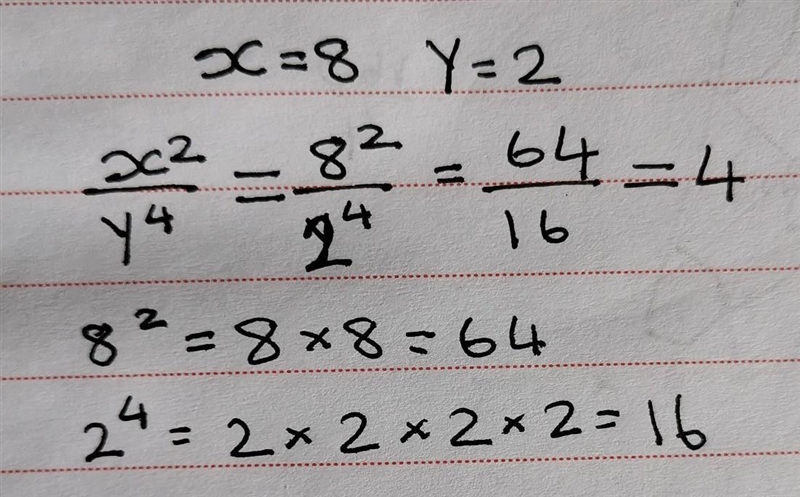 x = 8 Y = 2
x²/Y⁴ = 8²/2⁴ = 64/16 = 4
8² = 8 × 8 = 64
2⁴ = 2 × 2 × 2 × 2 = 16